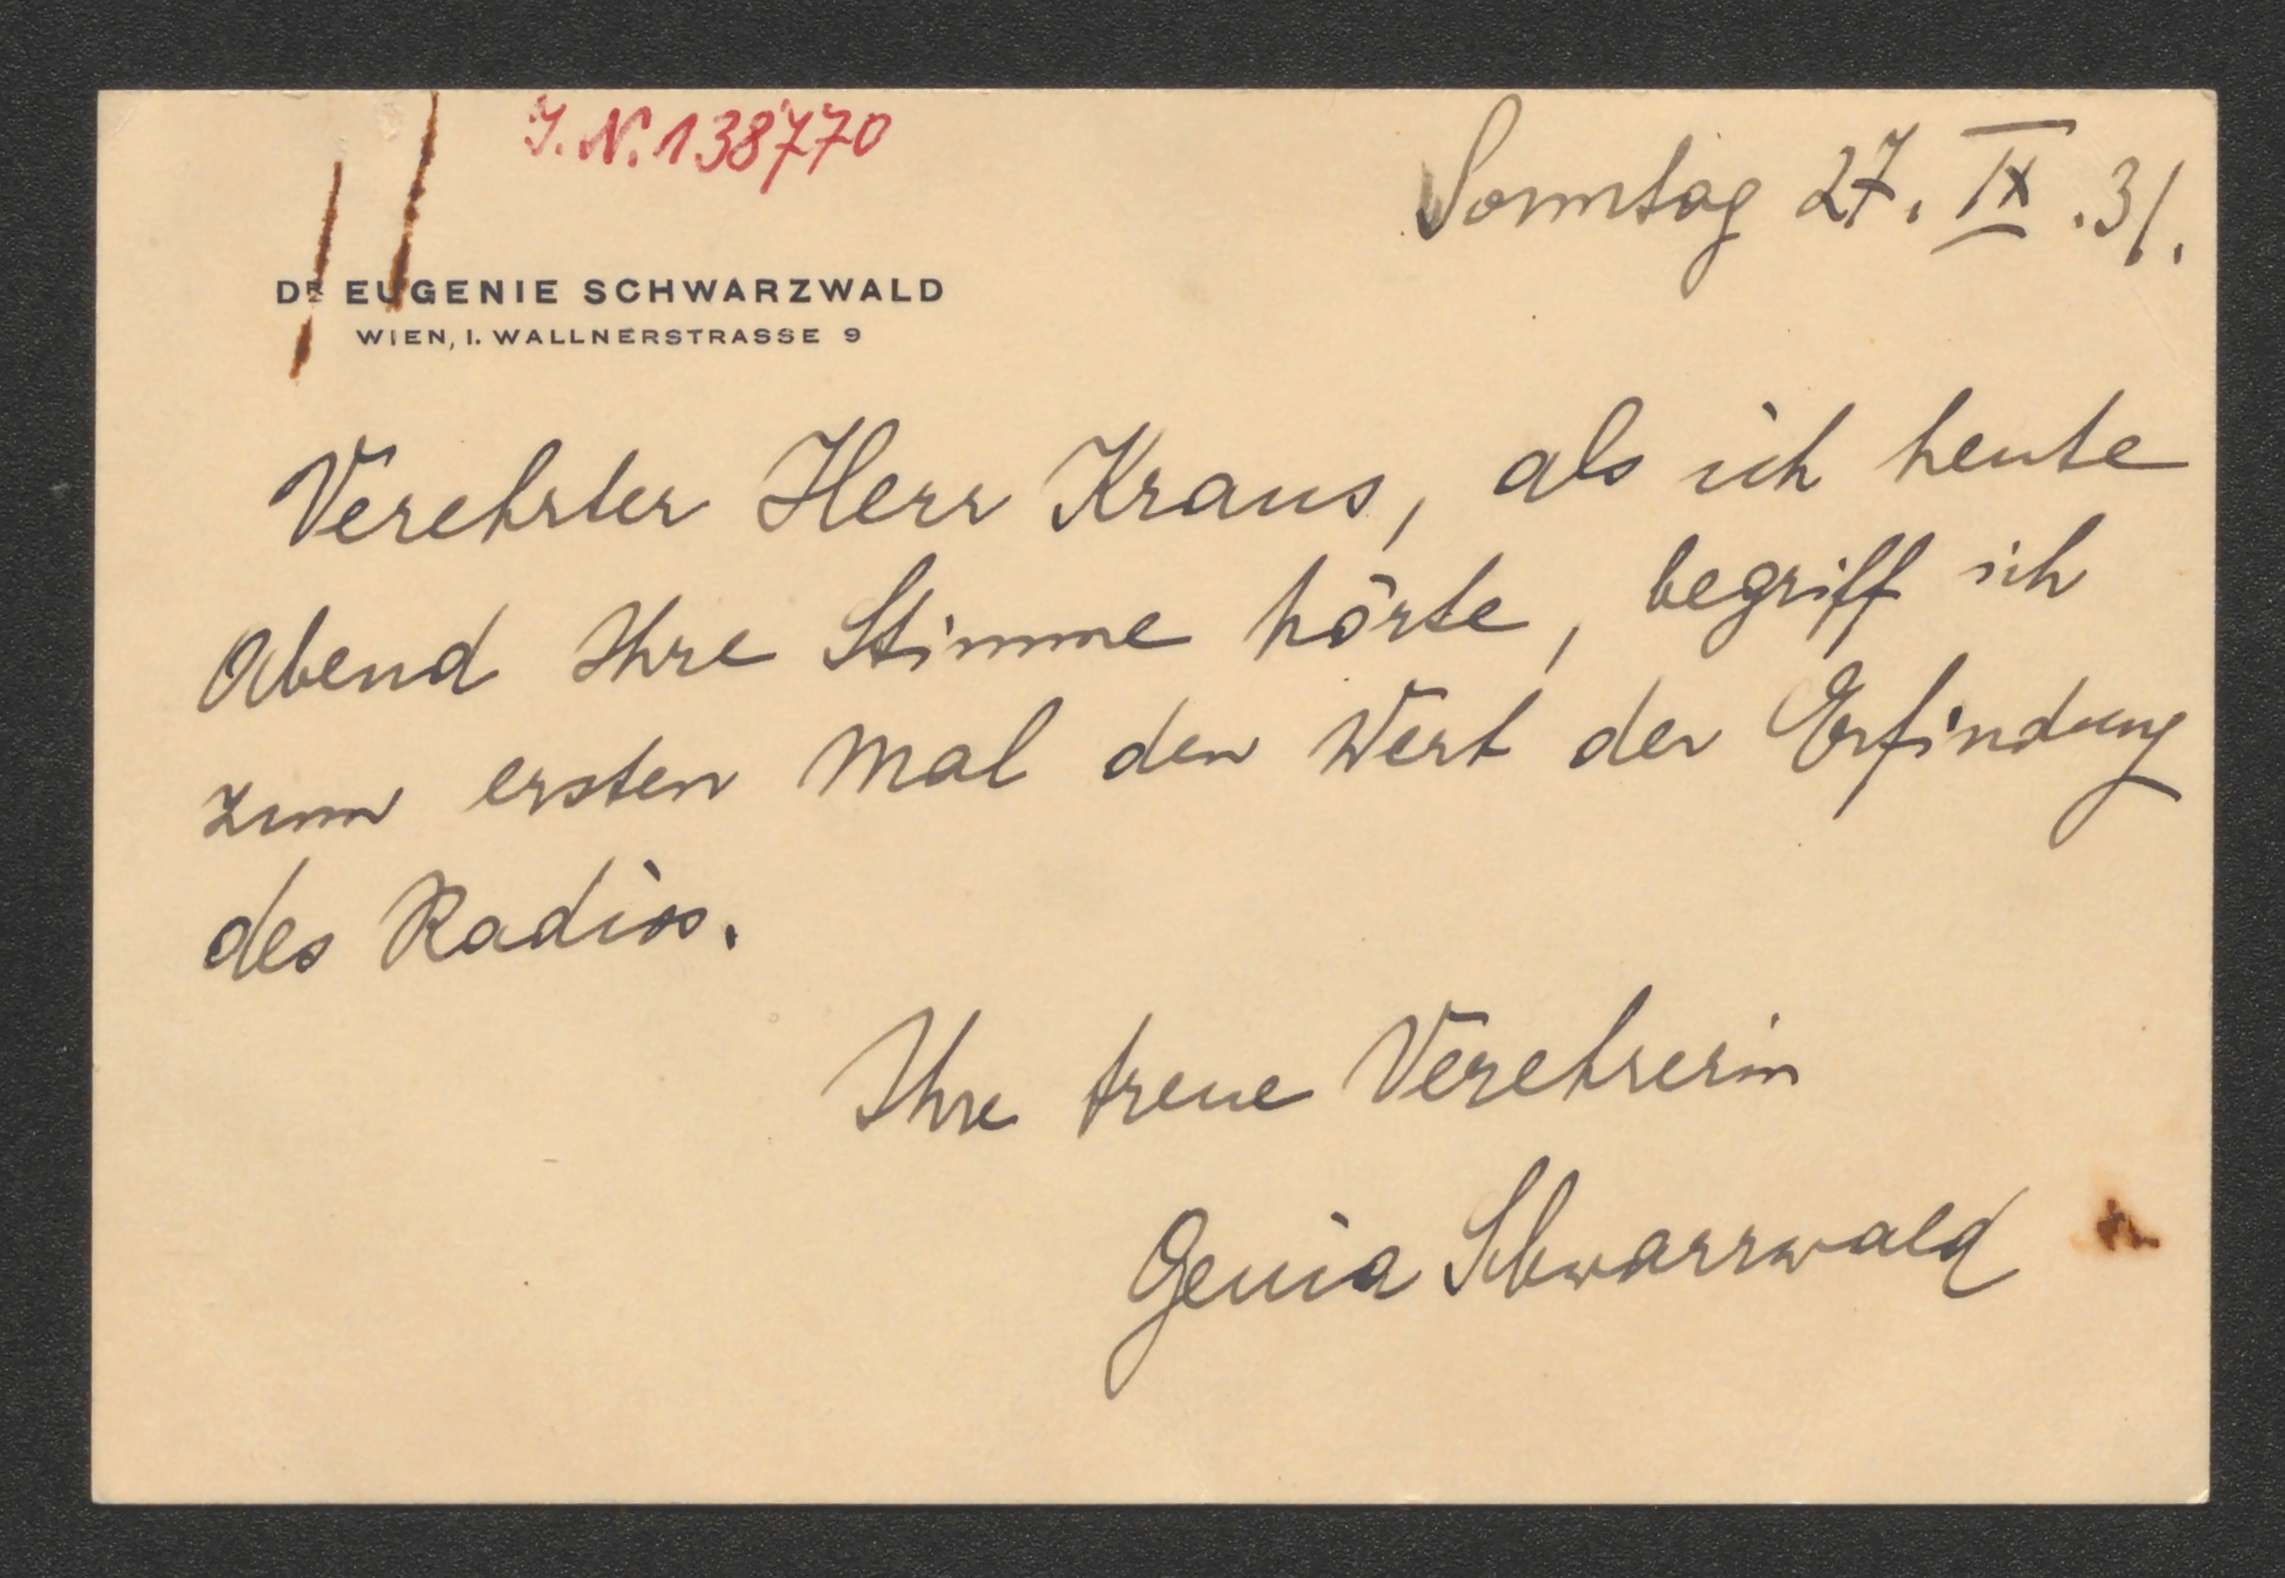 J.N. 138770
Sonntag 27. IX. 31.
DR EUGENIE SCHWARZWALD
WIEN, I. WALLNERSTRASSE 9
Verehrter Herr Kraus, als ich heute
Abend Ihre Stimme hörte, begriff ich
zum ersten Mal den Wert der Erfindung
des Radios.
Ihre treue Verehrerin
Genia Schwarzwald